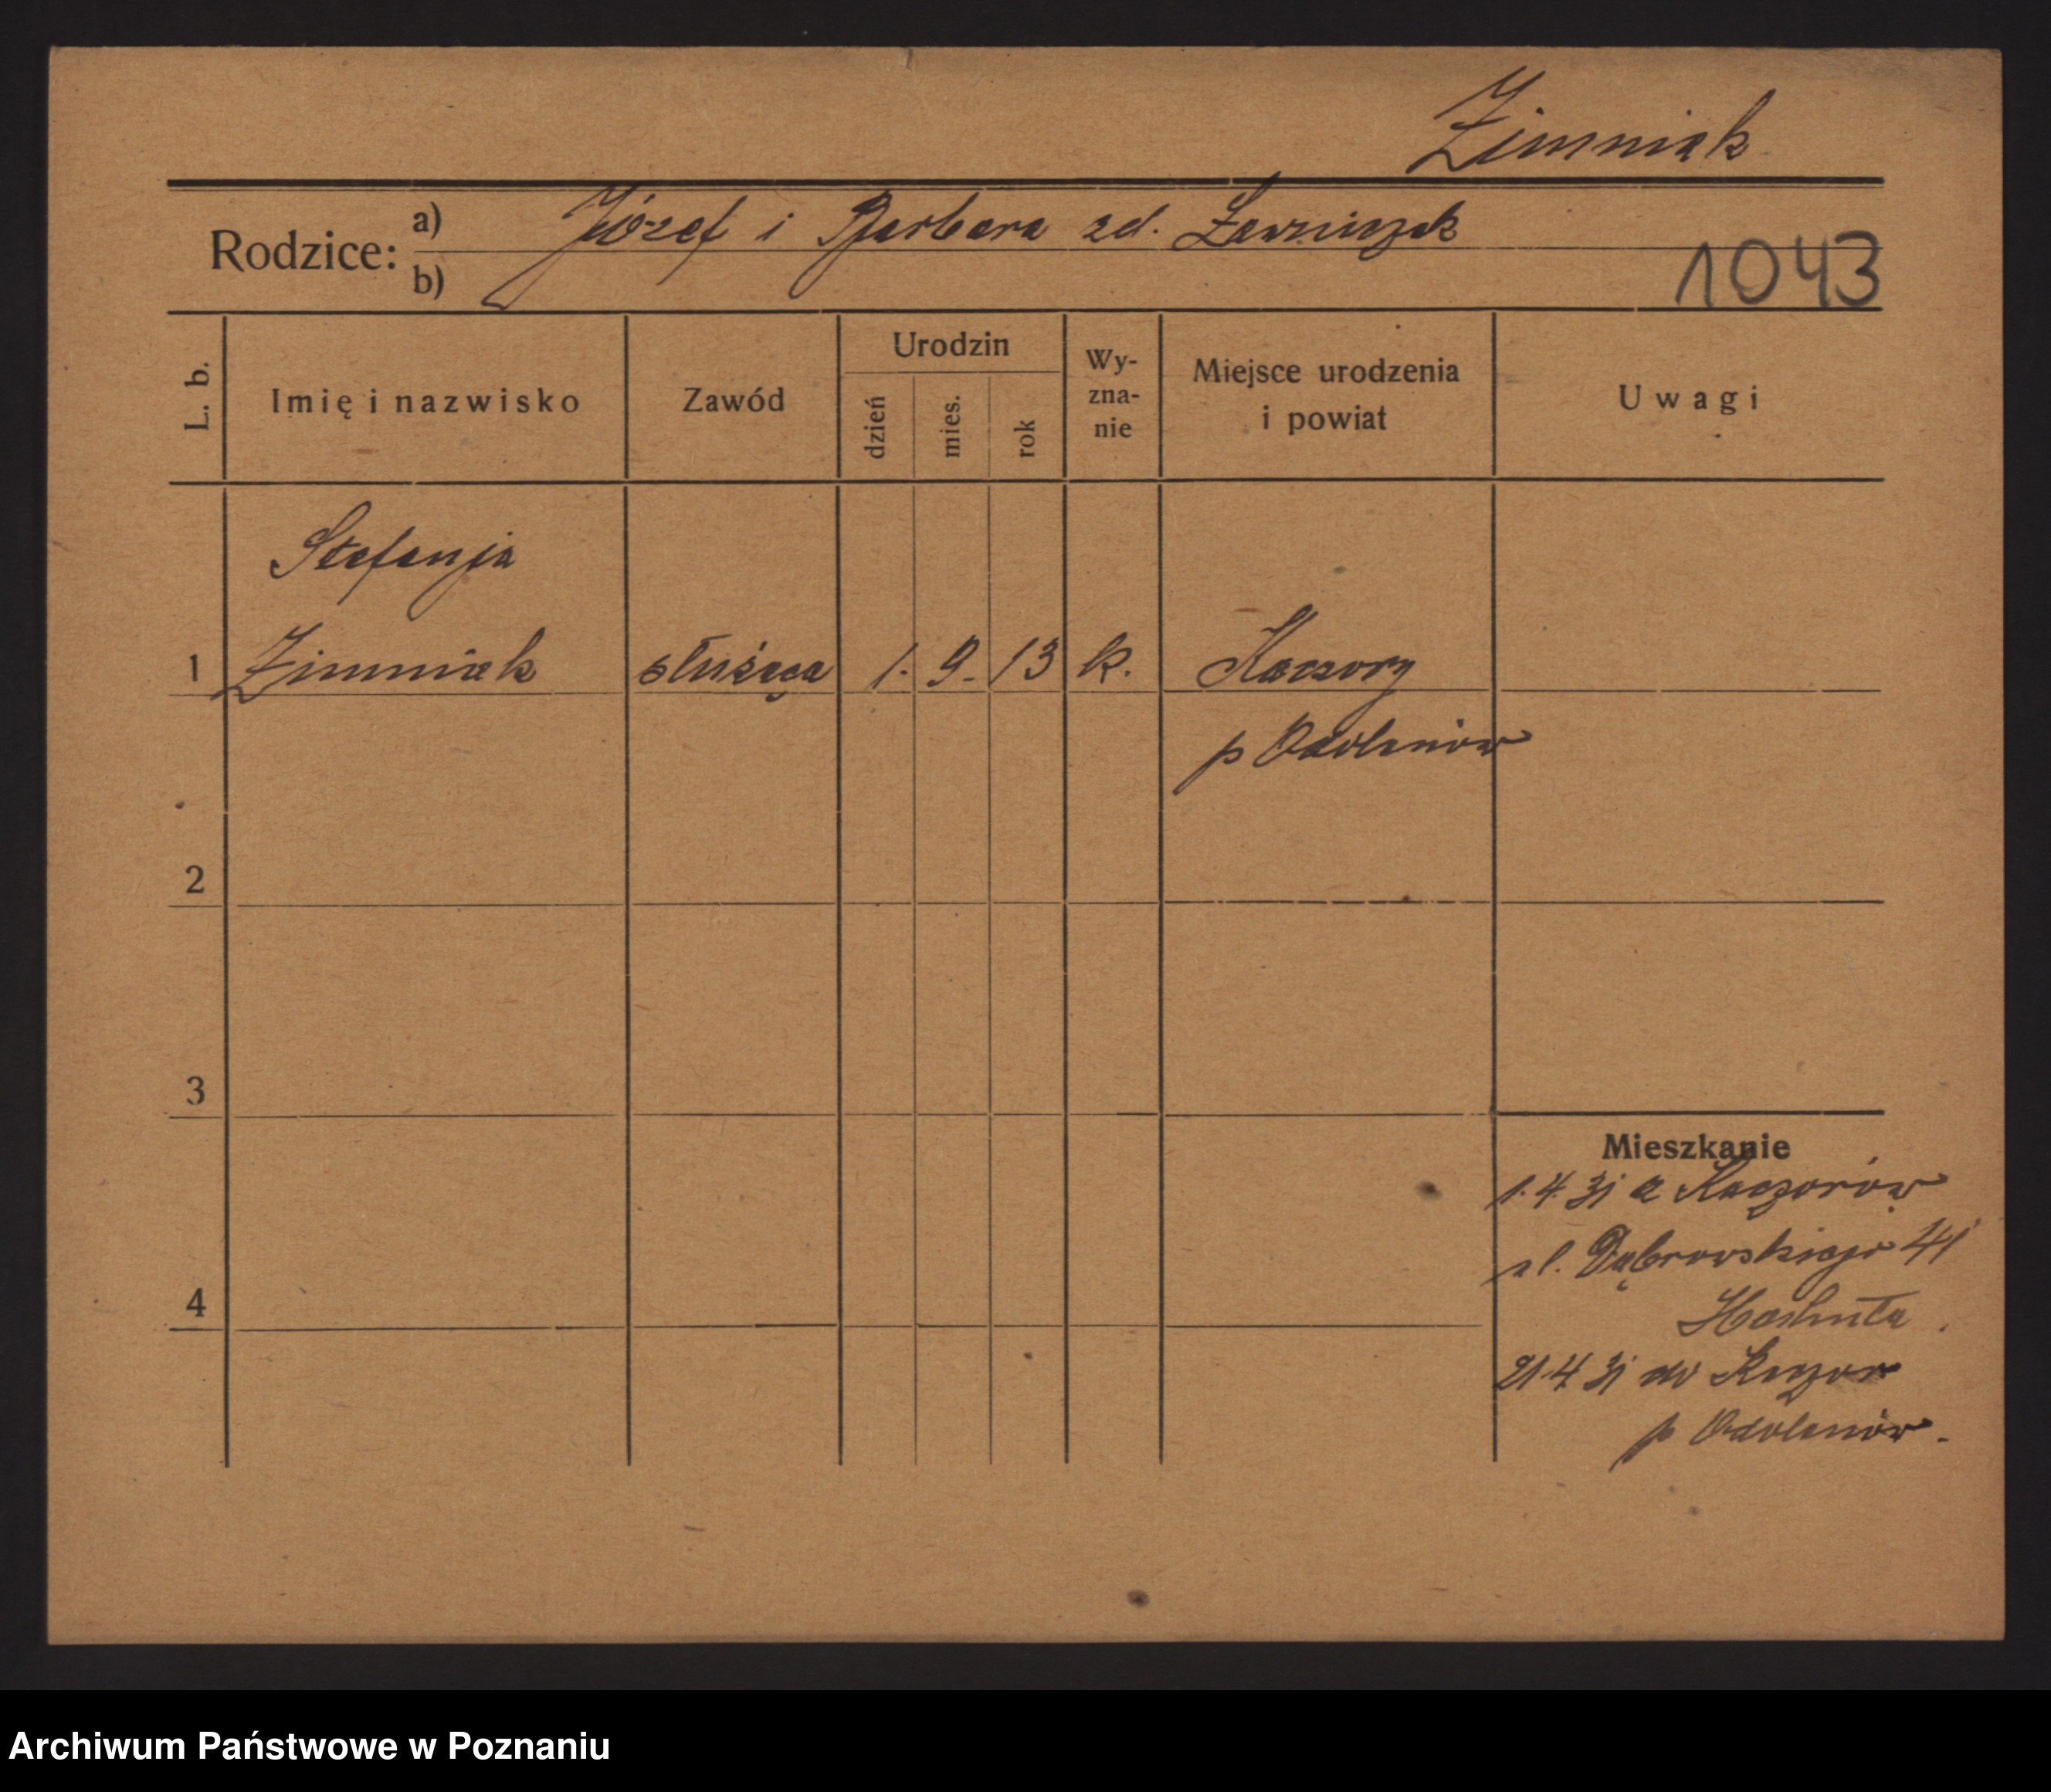 Zimniak
Rodzice: a) Józef i Barbara zd. Ławniczak
b)
1043
L. b.
Imię i nazwisko
Zawód
Urodzin
dzień
mies.
rok
Wy-
zna-
nie
Miejsce urodzenia
i powiat
Uwagi
Stefanja
1 Zimniak służąca 1. 9. 13 k. Kaczory
p Odolanów
2
3
4
Mieszkanie
1.4.31 z Kaczorów
ul. Dąbrowskiego 41
21 4 31 do Kaczor
p Odolanów.
Archiwum Państwowe w Poznaniu